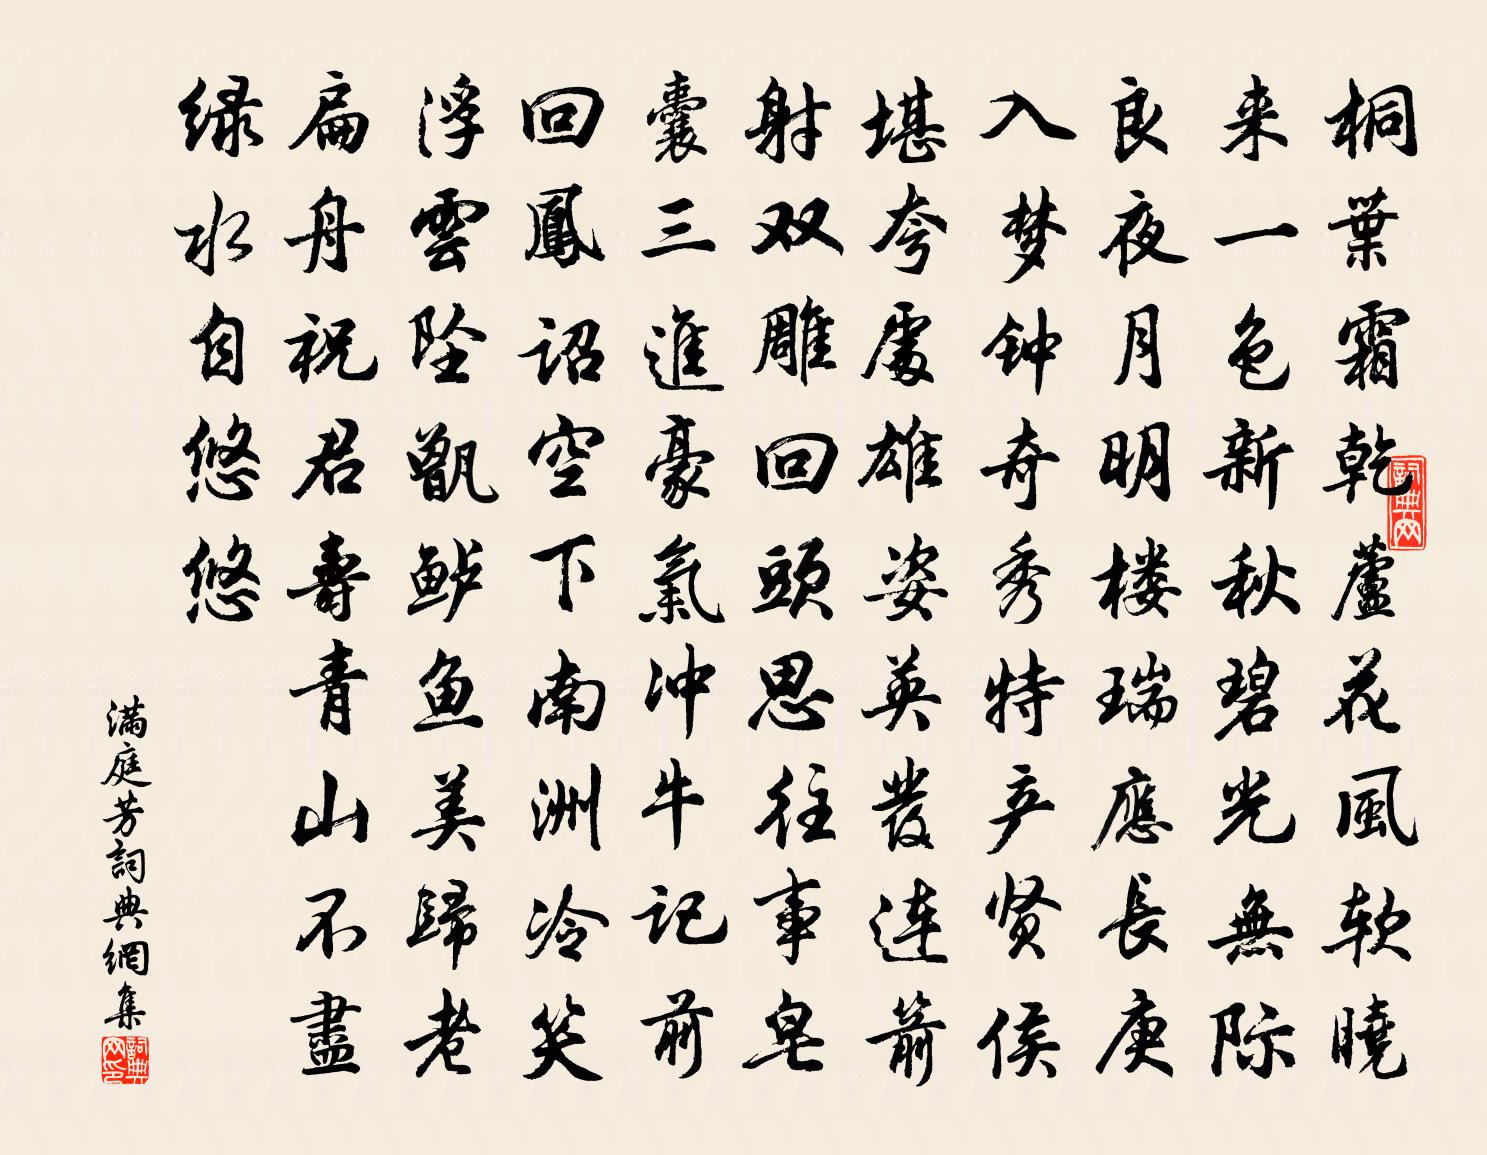 桐葉霜乾蘆花風软曉
来一色新秋碧光無际
良夜月明楼瑞應長庚
入梦钟奇秀特产贤侯
堪夸處雄姿英發连箭
射双雕回頭思往事皂
囊三進豪氣冲牛记前
回鳳诏空下南洲冷笑
浮雲坠甑鲈鱼美歸老
扁舟祝君壽青山不盡
绿水自悠悠
滿庭芳詞典網集
詞典网
詞典网印